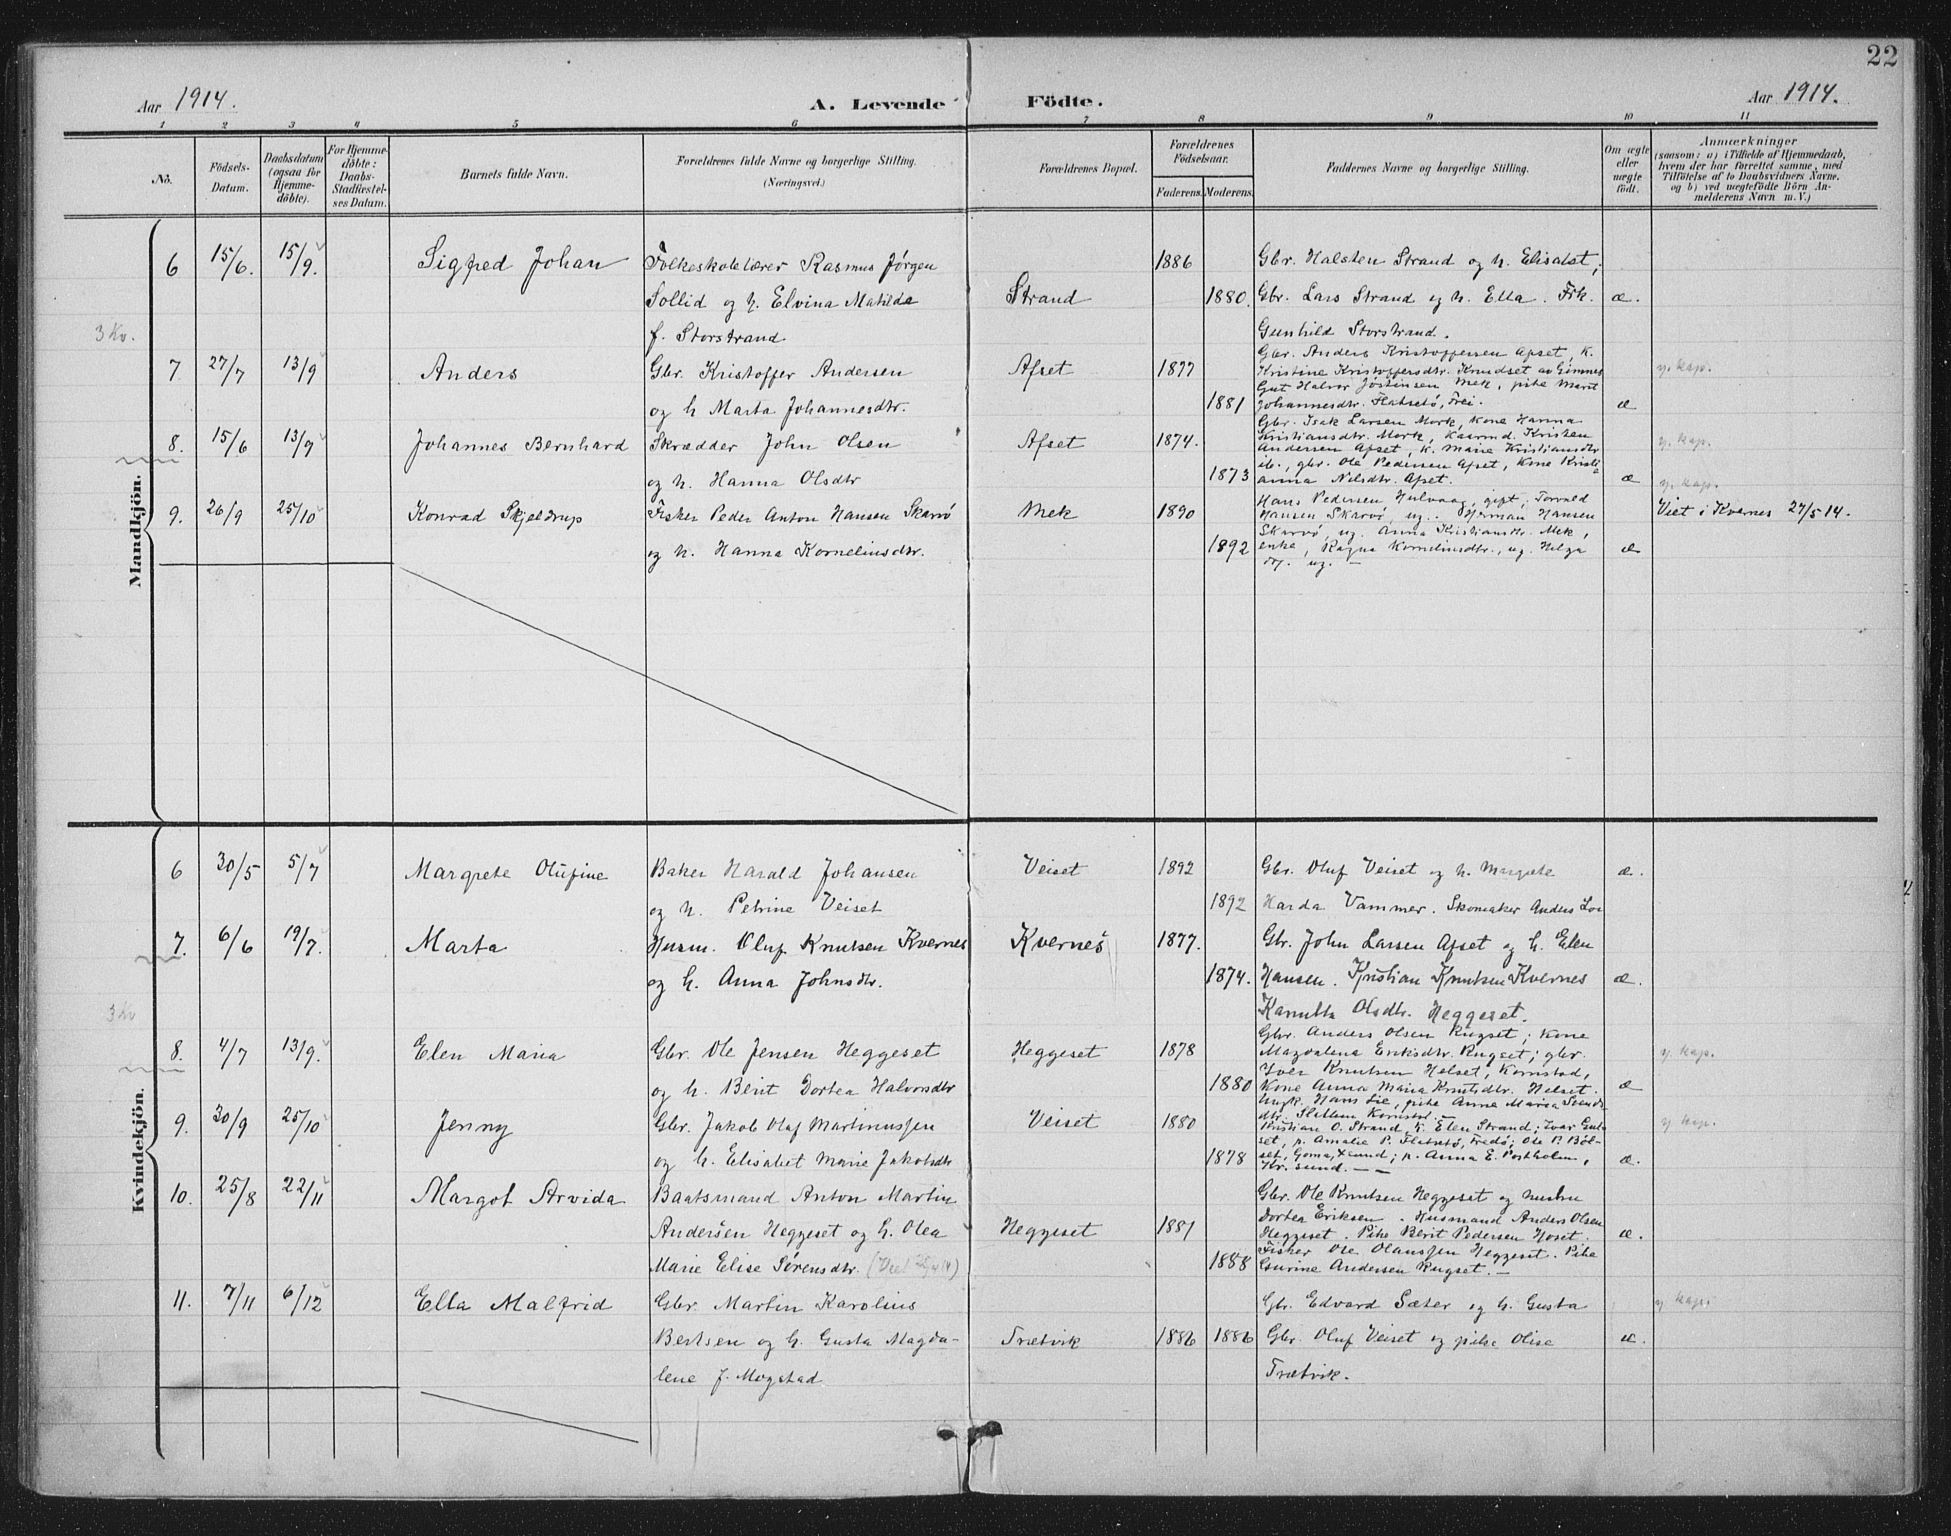 22
Aar 1914.
A. Levende Födte.
Aar 1914.
1 2 3 4 5 6 7 8 9 10 11
No.
Födsels-Datum.
Daabsdatum (ogsaa for Hjemme-döbte).
For Hjemme-döbte: Daabs-Stadfæstel-ses Datum.
Barnets fulde Navn.
Forældrenes fulde Navne og borgerlige Stilling.
(Næringsvei.)
Forældrenes Bopæl.
Forældrenes Födselsaar.
Faderens. Moderens.
Faddernes Navne og borgerlige Stilling.
Om ægte eller uægte födt.
Anmærkninger
(saasom: a) i Tilfælde af Hjemmedaab,
hvem der har forrettet samme, med
Tilföielse af to Daabsvidners Navne,
og b) ved uægtefödte Börn An-
melderens Navn m. V.)
Mandkjön.
3 Kv.
6 15/6. 15/9. Sigfred Johan Folkeskolelærer Rasmus Jørgen 1886 Gbr. Halsten Strand og h. Elisabet;
Sollid og h. Elvina Matilde Strand 1880. Gbr. Lars Strand og h. Ella. Frk. æ.
f. Storstrand Gunhild Storstrand.
7. 27/7 13/9 Anders Gbr. Kristoffer Andersen Afset 1877 Gbr. Anders Kristoffersen Afset, K.
Kristine Kristoffersdtr. Knudset av Gimnes
Gut Halvor Jöstinsen Mek, pike Marit
og h Marta Johannesdtr. 1881 Johannesdtr. Flatsetö, Frei. æ
y. kap.
8. 15/6 13/9 Johannes Bernhard Skrædder John Olsen Afset 1874. Gbr. Isak Larsen Mork, kone Hanna
Kristiansdtr. Mork, Kaarmd. Kristen
Andersen Afset, k. Marie Kristiansdtr
ib., gbr. Ole Pedersen Afset, kone Kristi-
og h. Hanna Olsdtr 1873 anna Nilsdtr. Afset. æ
y. kap.
y. kap.
9. 26/9 25/10 Konrad Skjeldrup Fisker Peder Anton Hansen Skarvö Mek 1890 Hans Pedersen Hulvaag, gift, Torvald
Hansen Skarvö, ug. Herman Hansen
Skarvö, ug. Anna Kristiansdtr. Mek,
og h. Hanna Kornelinsdtr. 1892 enke, Ragna Kornelinsdtr., ug. Helga
do. ug. — æ
Viet i Kvernes 27/5 14.
Kvindekjön.
3 Kv
6 30/5 5/7 Margrete Olufine Baker Harald Johansen Veiset 1892 Gbr. Oluf Veiset og h. Margrete æ.
og h. Petrine Veiset 1892 Harda Vammer. Skomaker Anders Loe
7. 6/6 19/7. Marta Husm. Oluf Knutsen Kvernes Kvernes 1877. Gbr. John Larsen Afset og h. Elen
og h. Anna Johnsdtr. 1874. Hansen. Kristian Knutsen Kvernes æ.
Kanutta Olsdtr. Heggeset.
8. 4/7 13/9. Elen Maria Gbr. Ole Jensen Heggeset Heggeset 1878 Gbr. Anders Olsen Rugset; kone
Magdalena Eriksdtr. Rugset; gbr.
Iver Knutsen Helset, Kornstad,
og h. Berit Dortea Halvorsdtr 1880 Kone Anna Maria Knutsdtr. Helset. æ
Ungk. Hans Lie, pike Anne Maria
y. kap.
9. 30/9 25/10 Jenny Gbr. Jakob Olaf Martinussen Veiset 1880 Kristian O. Strand, k. Elen Strand; Ivar
set, p. Amalie P. Flatsetö, Fredö; Ole P. Böl-
og h. Elisabet Marie Jakobsdtr 1878 set, p. Anna E. Portholm,
Kr.sund. — — æ.
y kap.
10. 25/8 22/11 Margot Arvida Baatsmand Anton Martin Gbr. Ole Knutsen Heggeset og hustru
Andersen Heggeset og h. Olea Heggeset 1881 Dortea Eriksen. Husmand Anders Olsen
Heggeset. Pike Berit Pedersen Hoset. æ.
Marie Elise Sörensdtr. 1888 Fisker Ole Olaussen Heggeset. Pike
Gurine Andersen Rugset. —
11. 7/11 6/12 Ella Malfrid Gbr. Martin Karolius Gbr. Edvard Sæter og h. Gusta y kap.
Bertsen og h. Gusta Magda- Trætvik 1886 1886 Gbr. Oluf Veiset og pike Olise æ.
lene f. Mogstad Trætvik.